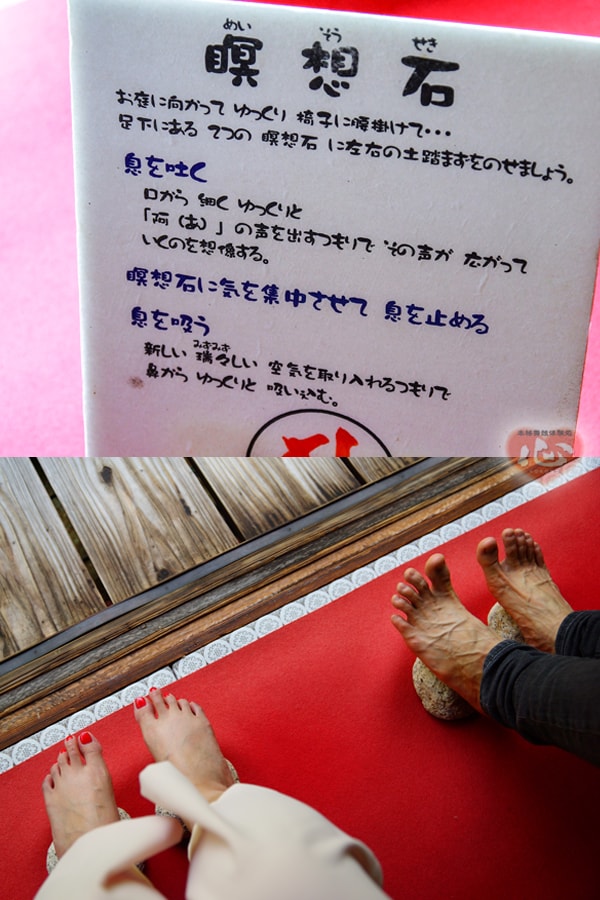 めい そう せき
瞑想石
お庭に向かって ゆっくり 椅子に腰掛けて・・・
足下にある 2つの 瞑想石 に左右の土踏まずをのせましょう。
息を吐く
口から 細く ゆっくりと
「阿(あ)」の声を出すつもりで その声が 広がって
いくのを想像する。
瞑想石に気を集中させて 息を止める
息を吸う
みずみず
新しい 瑞々しい 空気を取り入れるつもりで
鼻から ゆっくりと 吸い込む。
心